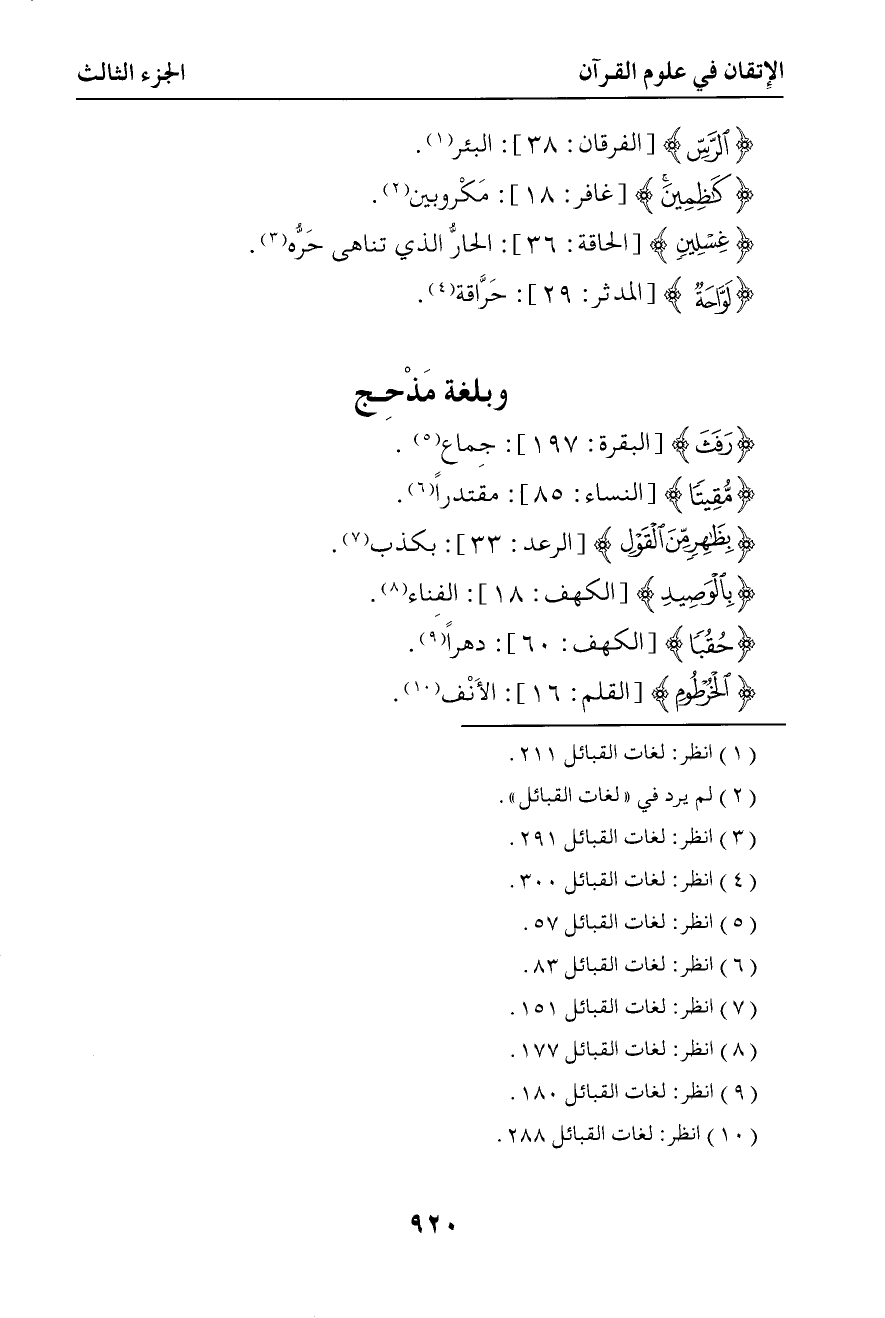 الإتقان في علوم القرآن الجزء الثالث
﴿ ٱلرَّسِّ ﴾ [الفرقان: ٣٨]: البئر(١).
﴿ كَٰظِمِينَۚ ﴾ [غافر: ١٨]: مَكْروبين(٢).
﴿ غِسْلِينٍ ﴾ [الحاقة: ٣٦]: الحارُّ الذي تناهى حَرُّه(٣).
﴿ لَوَّاحَةٌ ﴾ [المدثر: ٢٩]: حَرَّاقة(٤).
وبلغة مَذْحِج
﴿ رَفَثَ ﴾ [البقرة: ١٩٧]: جِماع(٥).
﴿ مُّقِيتًا ﴾ [النساء: ٨٥]: مقتدراً(٦).
﴿ بِظَٰهِرٍ مِّنَ ٱلْقَوْلِ ﴾ [الرعد: ٣٣]: بكذب(٧).
﴿ بِٱلْوَصِيدِ ﴾ [الكهف: ١٨]: الفِناء(٨).
﴿ حُقُبًا ﴾ [الكهف: ٦٠]: دهراً(٩).
﴿ ٱلْخُرْطُومِ ﴾ [القلم: ١٦]: الأَنْف(١٠).
(١) انظر: لغات القبائل ٢١١.
(٢) لم يرد في «لغات القبائل».
(٣) انظر: لغات القبائل ٢٩١.
(٤) انظر: لغات القبائل ٣٠٠.
(٥) انظر: لغات القبائل ٥٧.
(٦) انظر: لغات القبائل ٨٣.
(٧) انظر: لغات القبائل ١٥١.
(٨) انظر: لغات القبائل ١٧٧.
(٩) انظر: لغات القبائل ١٨٠.
(١٠) انظر: لغات القبائل ٢٨٨.
٩٢٠